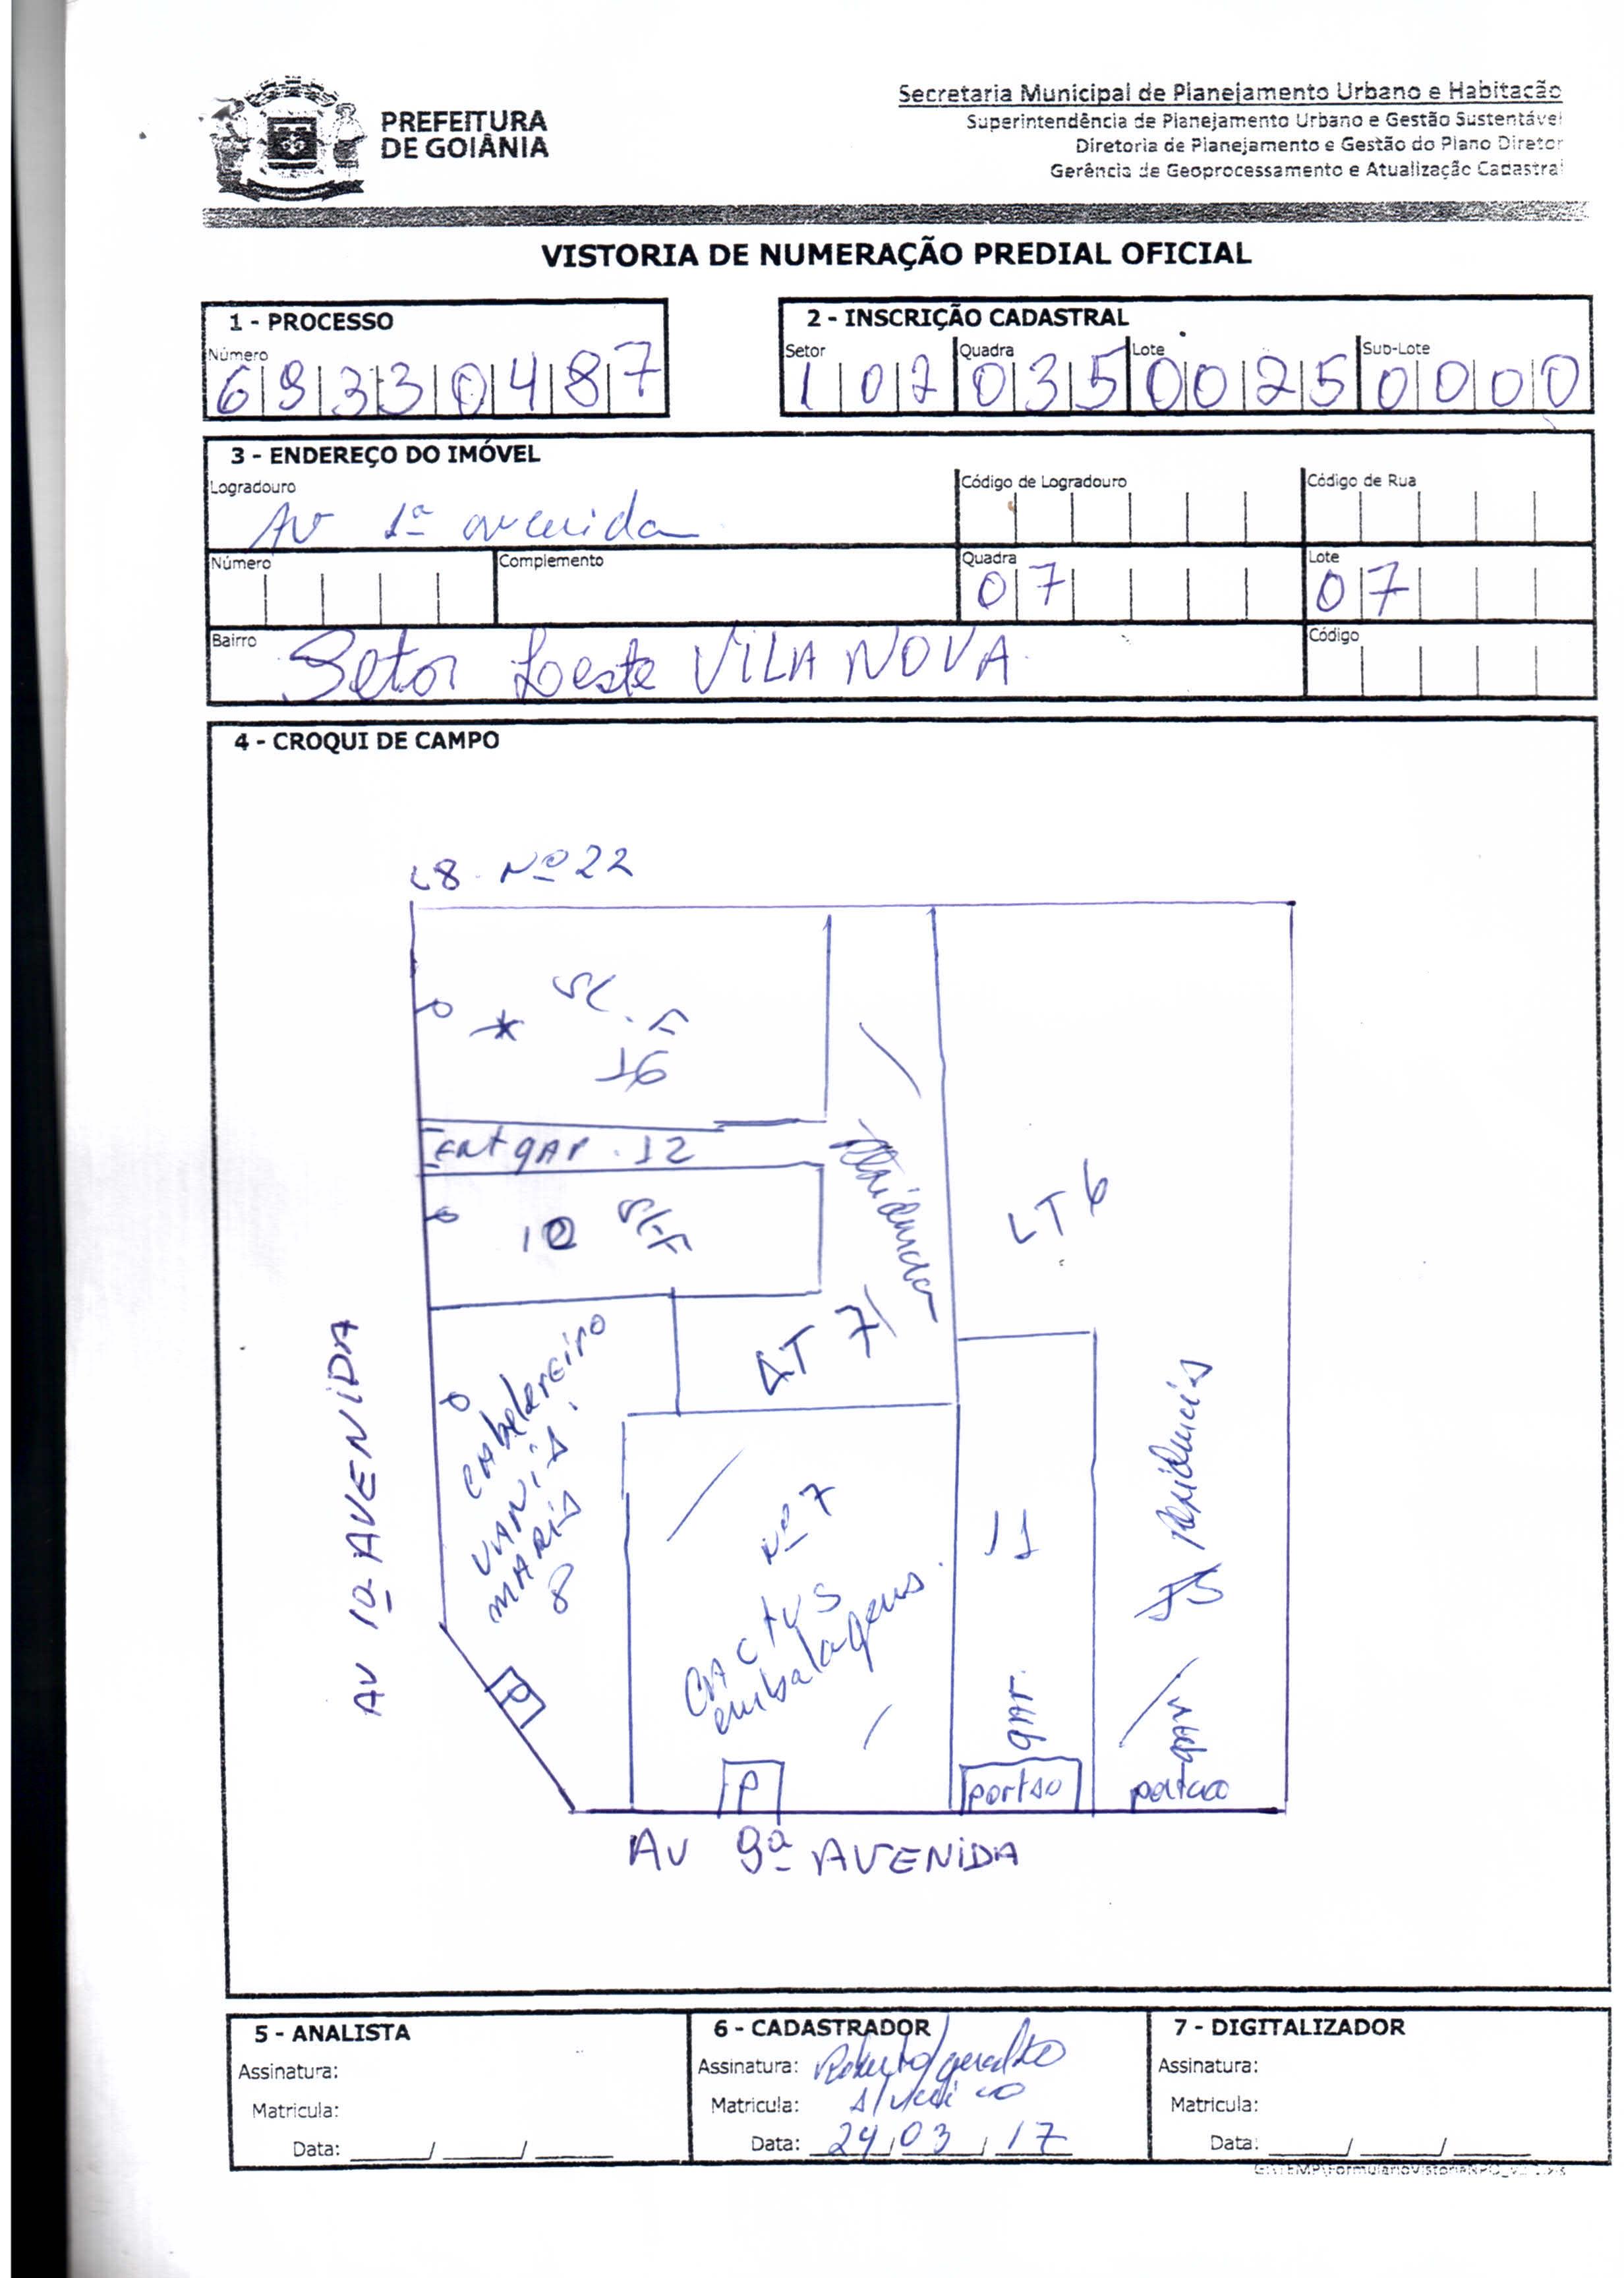 PREFEITURA
DE GOIÂNIA
Secretaria Municipal de Planejamento Urbano e Habitação
Superintendência de Planejamento Urbano e Gestão Sustentável
Diretoria de Planejamento e Gestão do Plano Diretor
Gerência de Geoprocessamento e Atualização Cadastral
VISTORIA DE NUMERAÇÃO PREDIAL OFICIAL
1 - PROCESSO
Número
69330487
2 - INSCRIÇÃO CADASTRAL
Setor Quadra Lote Sub-Lote
102 035 0025 0000
3 - ENDEREÇO DO IMÓVEL
Logradouro Código de Logradouro Código de Rua
Av 1ª avenida
Número Complemento Quadra Lote
07 07
Bairro Código
Setor Leste VILA NOVA
4 - CROQUI DE CAMPO
L8 Nº 22
SL. F
16
ENT gAr. 12
10 SL-F
Residencia
LT 6
LT 7
CAbelereiro
VANiA
MARiA
8
Nº 7
CACTUS
embalagens
11
gAr
portão
15 Residencia
gAr
portão
P
P
AV 1ª AVENiDA
AV 9ª AVENiDA
5 - ANALISTA
Assinatura:
Matricula:
Data: ____/____/____
6 - CADASTRADOR
Assinatura: Roberto/geraldo
Matricula:
Data: 24/03/17
7 - DIGITALIZADOR
Assinatura:
Matricula:
Data: ____/____/____